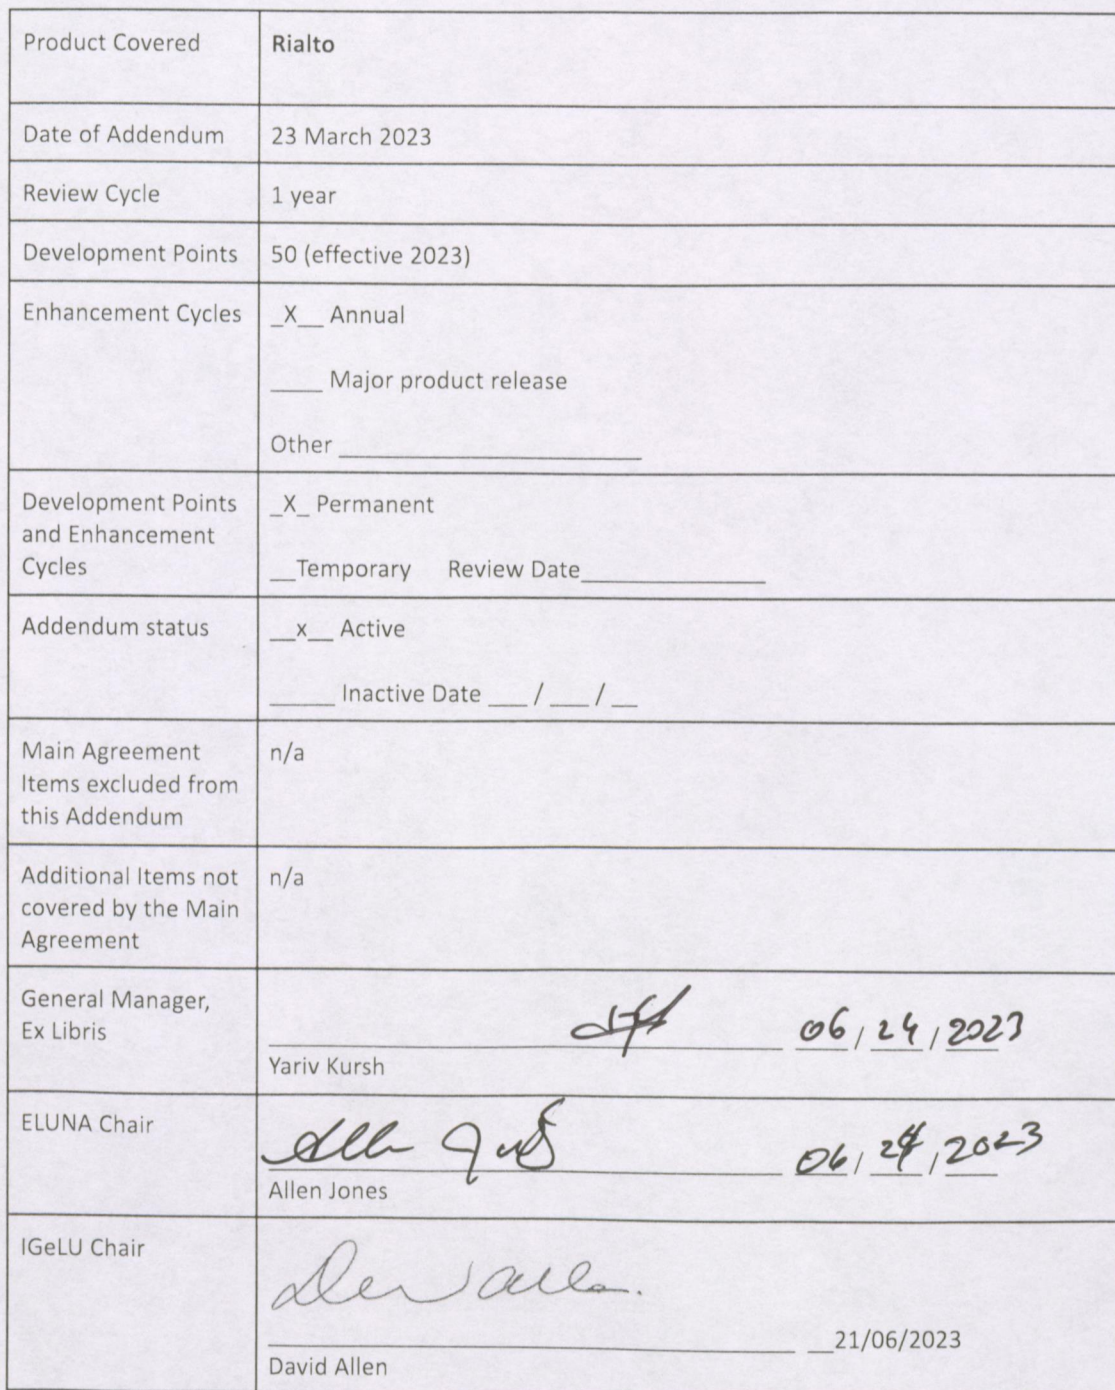 Product Covered Rialto
Date of Addendum 23 March 2023
Review Cycle 1 year
Development Points 50 (effective 2023)
Enhancement Cycles _X__ Annual
____ Major product release
Other _______________________
Development Points _X_ Permanent
and Enhancement
Cycles __Temporary Review Date______________
Addendum status __x__ Active
_____ Inactive Date ___ / ___ / __
Main Agreement n/a
Items excluded from
this Addendum
Additional Items not n/a
covered by the Main
Agreement
General Manager,
Ex Libris 06 / 24 / 2023
Yariv Kursh
ELUNA Chair
06 / 24 / 2023
Allen Jones
IGeLU Chair
__21/06/2023
David Allen